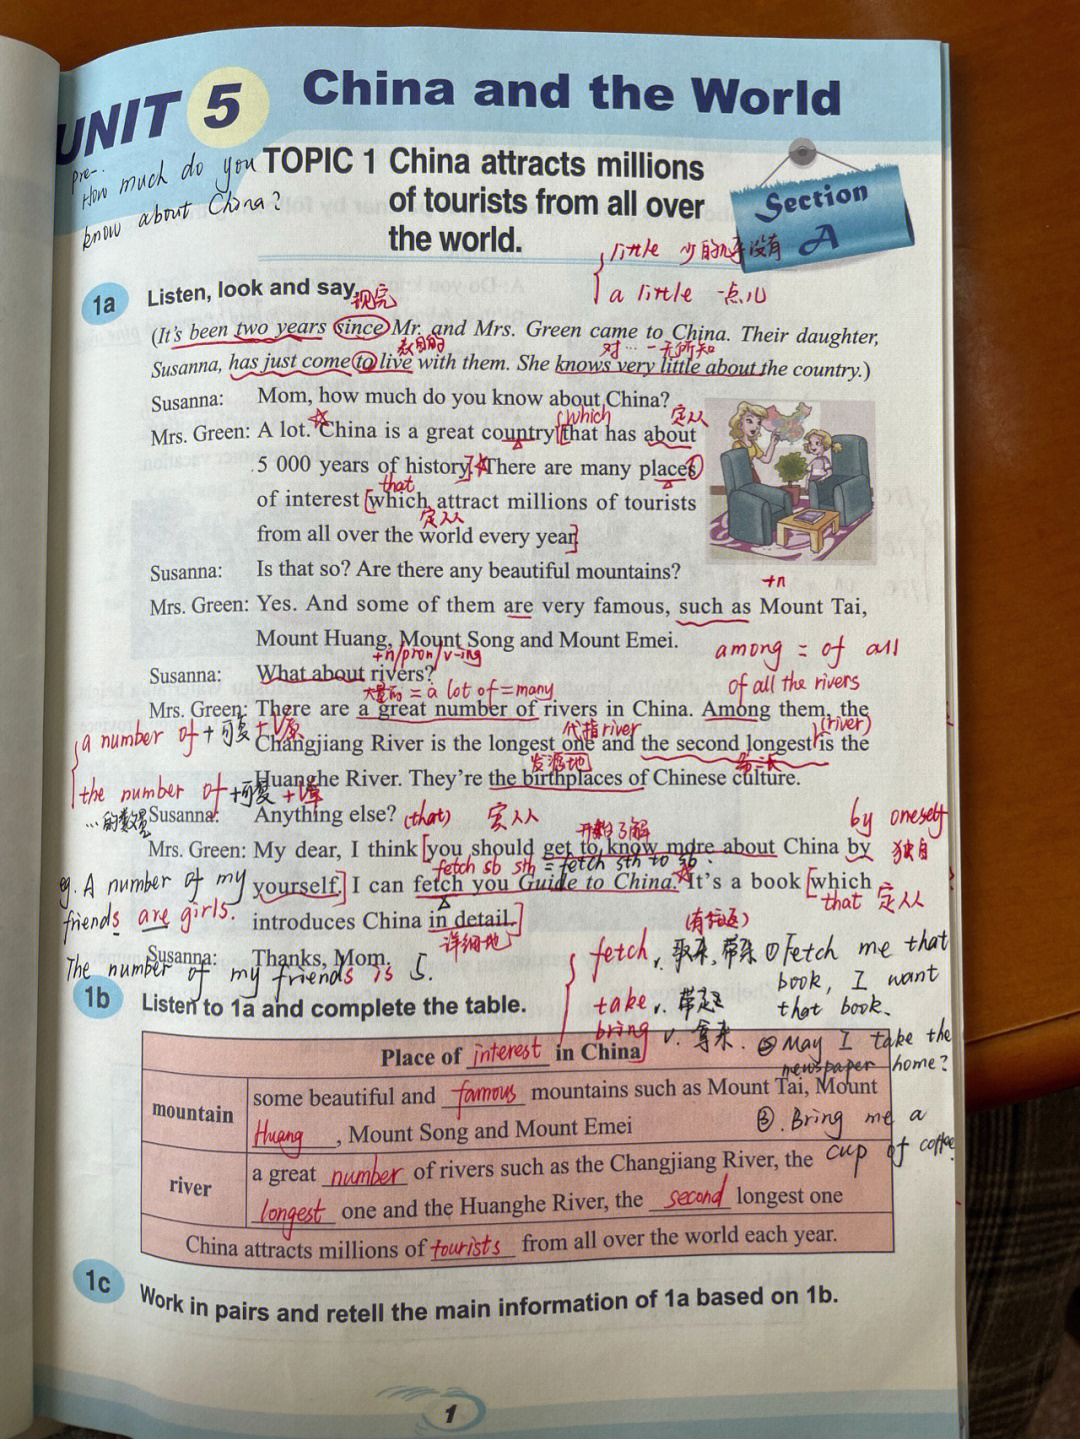 UNIT 5 China and the World
pre-.
How much do you
know about China?
TOPIC 1 China attracts millions
of tourists from all over
the world.
Section
A
little 少的几乎没有
a little 一点儿
1a Listen, look and say.
现完
(It's been two years since Mr. and Mrs. Green came to China. Their daughter,
表目的 对…一无所知
Susanna, has just come to live with them. She knows very little about the country.)
Susanna: Mom, how much do you know about China?
which 定从
Mrs. Green: A lot. China is a great country that has about
5 000 years of history. There are many places
that
of interest which attract millions of tourists
定从
from all over the world every year.
Susanna: Is that so? Are there any beautiful mountains?
+n
Mrs. Green: Yes. And some of them are very famous, such as Mount Tai,
Mount Huang, Mount Song and Mount Emei.
among = of all
+n/pron/v-ing
Susanna: What about rivers?
of all the rivers
大量的 = a lot of = many
Mrs. Green: There are a great number of rivers in China. Among them, the
a number of + 可复 + V原
代指river (river)
Changjiang River is the longest one and the second longest is the
发源地 第二长
Huanghe River. They're the birthplaces of Chinese culture.
the number of +可复 + V单
…的数量
Susanna: Anything else?
(that) 宾从 by oneself
开始了解 独自
Mrs. Green: My dear, I think you should get to know more about China by
fetch sb sth = fetch sth to sb.
yourself. I can fetch you Guide to China. It's a book which
eg. A number of my
friends are girls.
that 定从
introduces China in detail.
详细地
Susanna: Thanks, Mom.
The number of my friends is 5.
(有往返)
fetch v. 取来, 带来 ① Fetch me that
book, I want
that book.
take v. 带走
bring v. 拿来. ② May I take the
newspaper home?
③. Bring me a
cup of coffee.
1b Listen to 1a and complete the table.
Place of interest in China
mountain
some beautiful and famous mountains such as Mount Tai, Mount
Huang, Mount Song and Mount Emei
river
a great number of rivers such as the Changjiang River, the
longest one and the Huanghe River, the second longest one
China attracts millions of tourists from all over the world each year.
1c Work in pairs and retell the main information of 1a based on 1b.
1